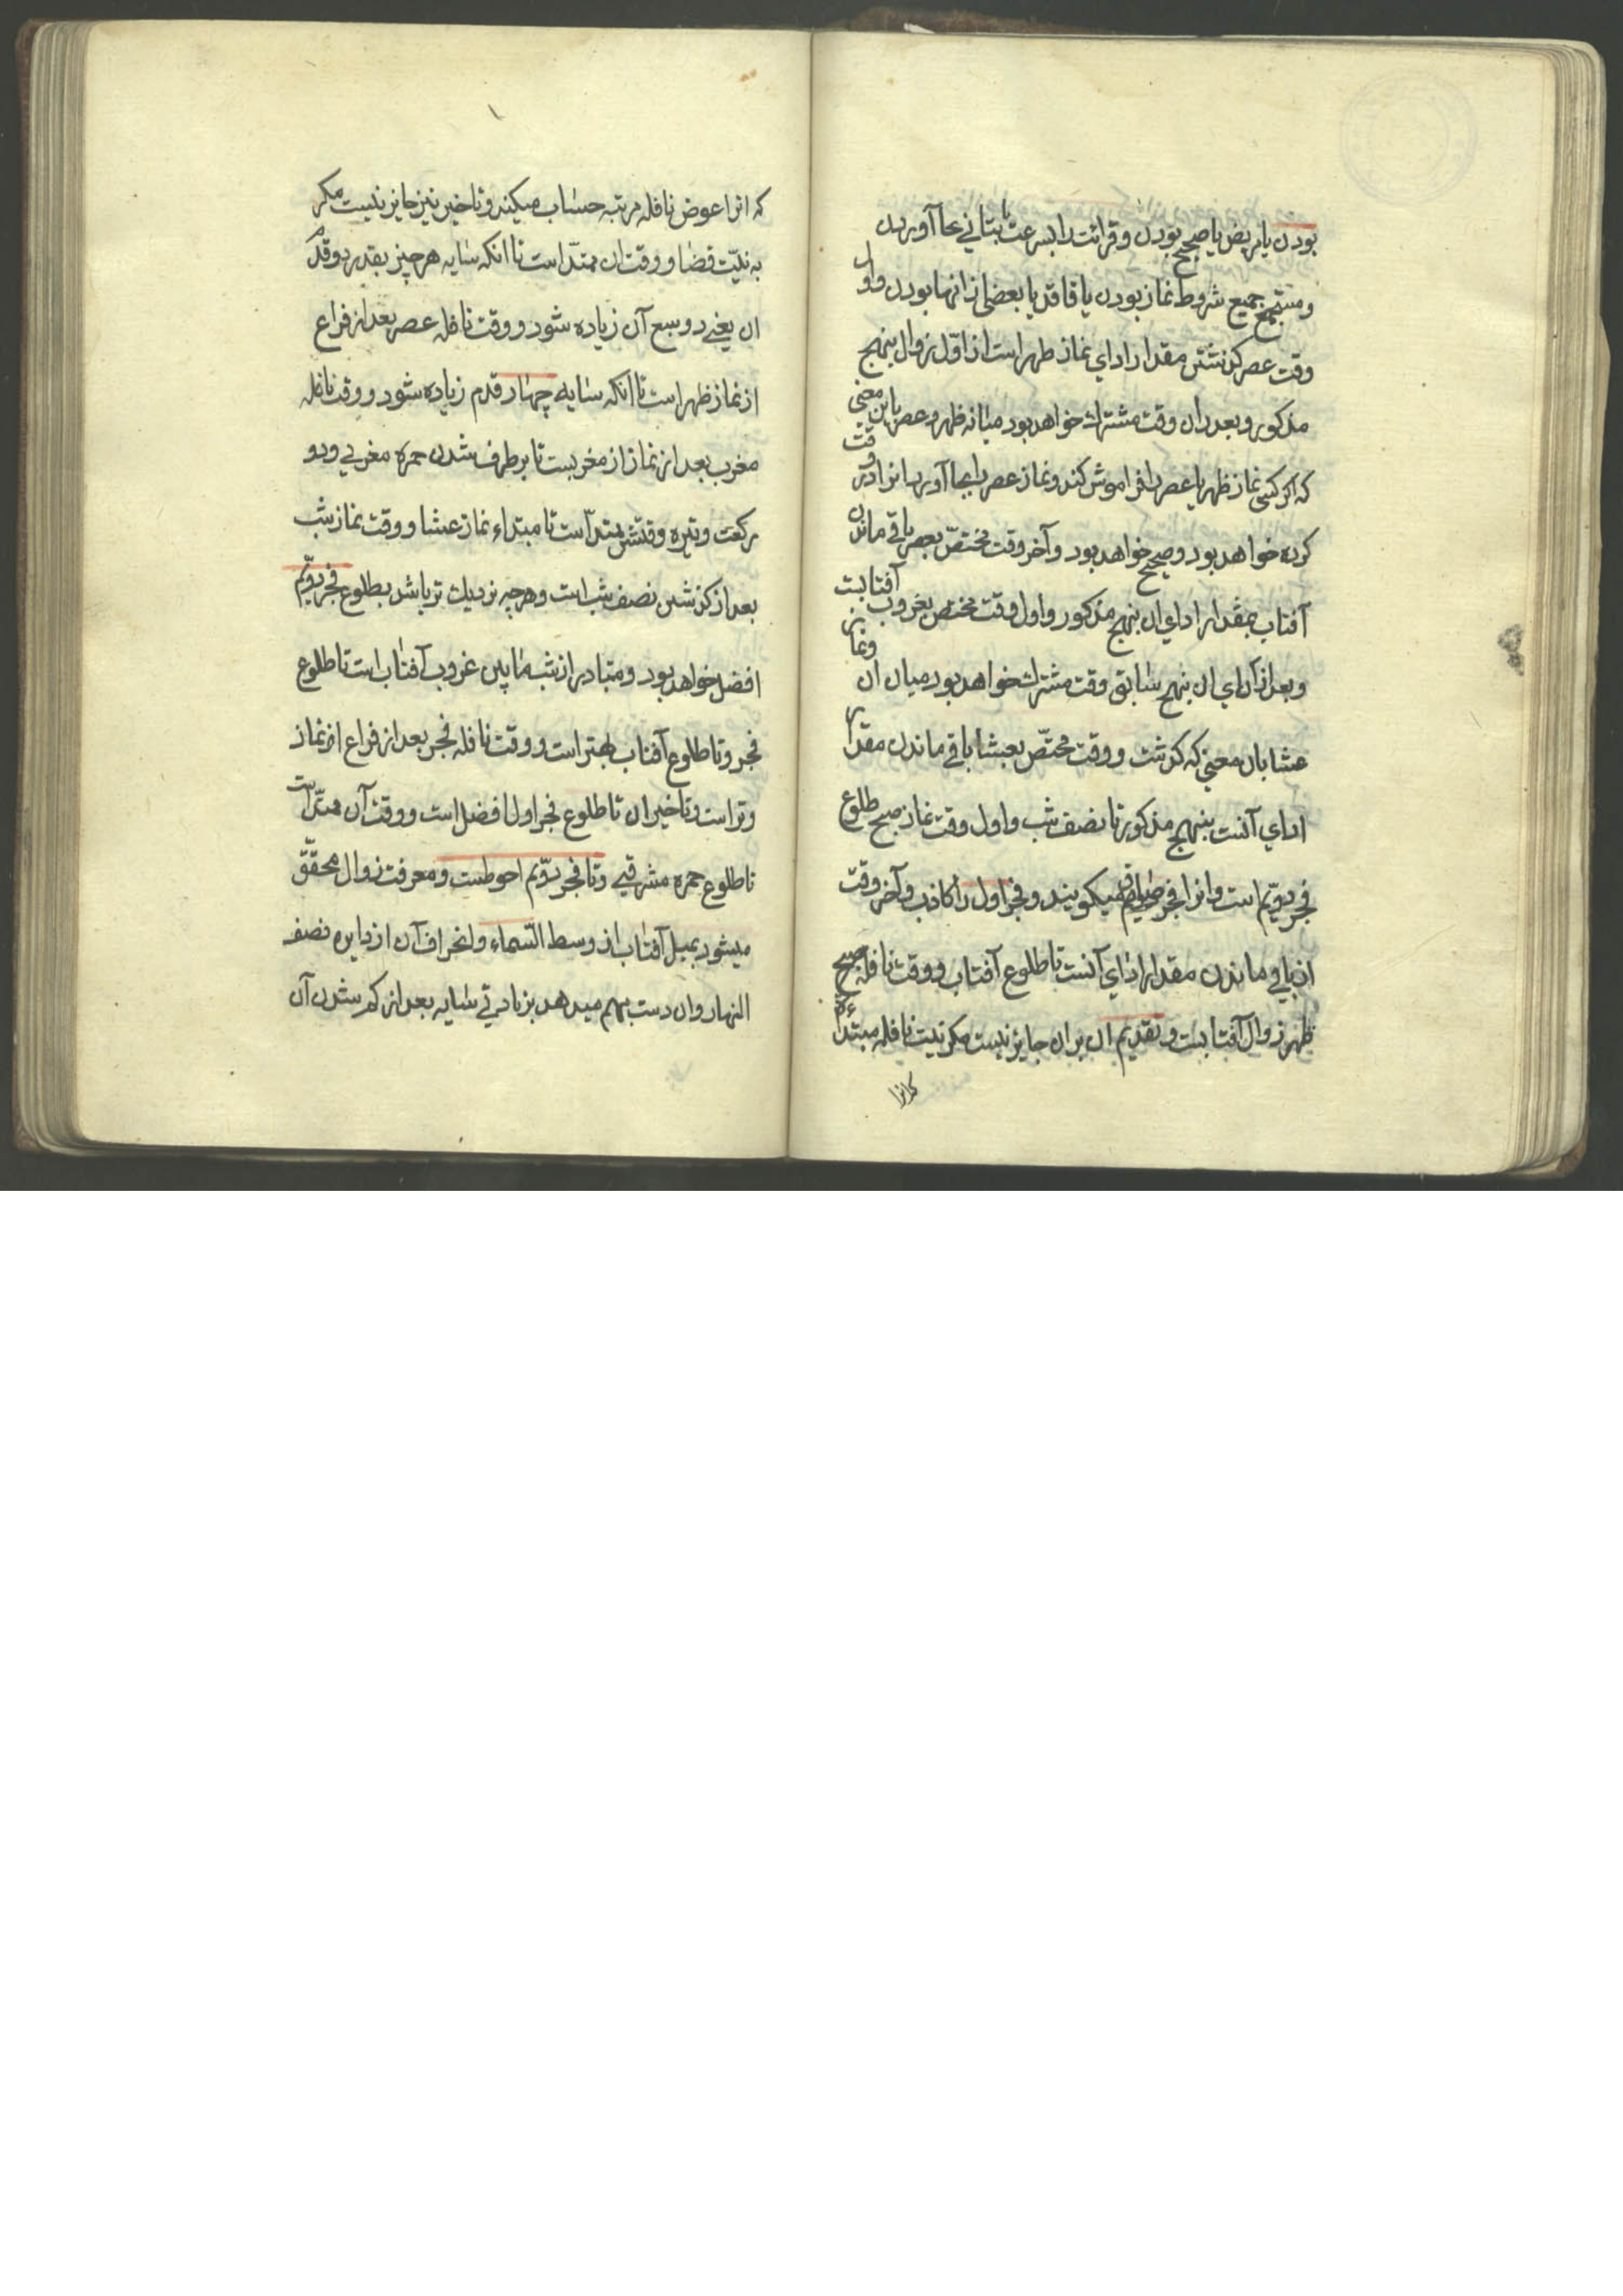 بودن یا مریض یا صحیح بودن و قرائت را بسرعت یا بتانی بجا آوردن
و مستجمع جمیع شروط نماز بودن یا فاقد یا بعضی از انها بودن و اول
وقت عصر کذشتن مقدار ادای نماز ظهر است از اول زوال بنهج
مذکور و بعد ازان وقت مشترک خواهد بود میانه ظهر و عصر باین معنی
که اکر کسی نماز ظهر یا عصر را فراموش کند و نماز عصر را بجا آورد انرا در وقت
کرده خواهد بود و صحیح خواهد بود و آخر وقت مختص بعصر باقی ماندن
آفتاب بمقدار ادای ان بنهج مذکور و اول وقت مختص بغروب آفتابست
و بعد از ادای ان بنهج سابق وقت مشترک خواهد بود میان ان و نماز
عشا بان معنی که کذشت و وقت مختص بعشا باقی ماندن مقدار
ادای آنست بنهج مذکور تا نصف شب و اول وقت نماز صبح طلوع
فجر دویم است و انرا فجر صادق میکویند و فجر اول را کاذب و آخر وقت
ان باقی ماندن مقدار ادای آنست تا طلوع آفتاب و وقت نافله صبح
ظهر زوال آفتابست و تقدیم ان بران جایز نیست مکر نیت نافله مبتداءة
که انرا
که انرا عوض نافله مرتبه حساب میکند و تاخیر نیز جایز نیست مکر
به نیت قضا و وقت ان ممتد است تا انکه سایه هر چیز بقدر دو قدم
ان یعنی دو سبع آن زیاده شود و وقت نافله عصر بعد از فراغ
از نماز ظهر است تا انکه سایه چهار قدم زیاده شود و وقت نافله
مغرب بعد از نماز از مغربست تا برطرف شدن حمره مغربی و دو
رکعت وتیره وقتش ممتد است تا مبتداء نماز عشا و وقت نماز شب
بعد از کذشتن نصف شب است و هر چه نزدیک تر باشد بطلوع فجر دویم
افضل خواهد بود و متبادر از شب مابین غروب آفتاب است تا طلوع
فجر و تا طلوع آفتاب بهتر است و وقت نافله فجر بعد از فراغ از نماز
وتر است و تاخیر ان تا طلوع فجر اول افضل است و وقت آن ممتد است
تا طلوع حمره مشرقی و تا فجر دویم احوطست و معرفت زوال محقق
میشود بمیل آفتاب از وسط السماء و انحراف آن از دایره نصف
النهار و ان دست بهم میدهد بزیادتی سایه بعد از کم شدن آن